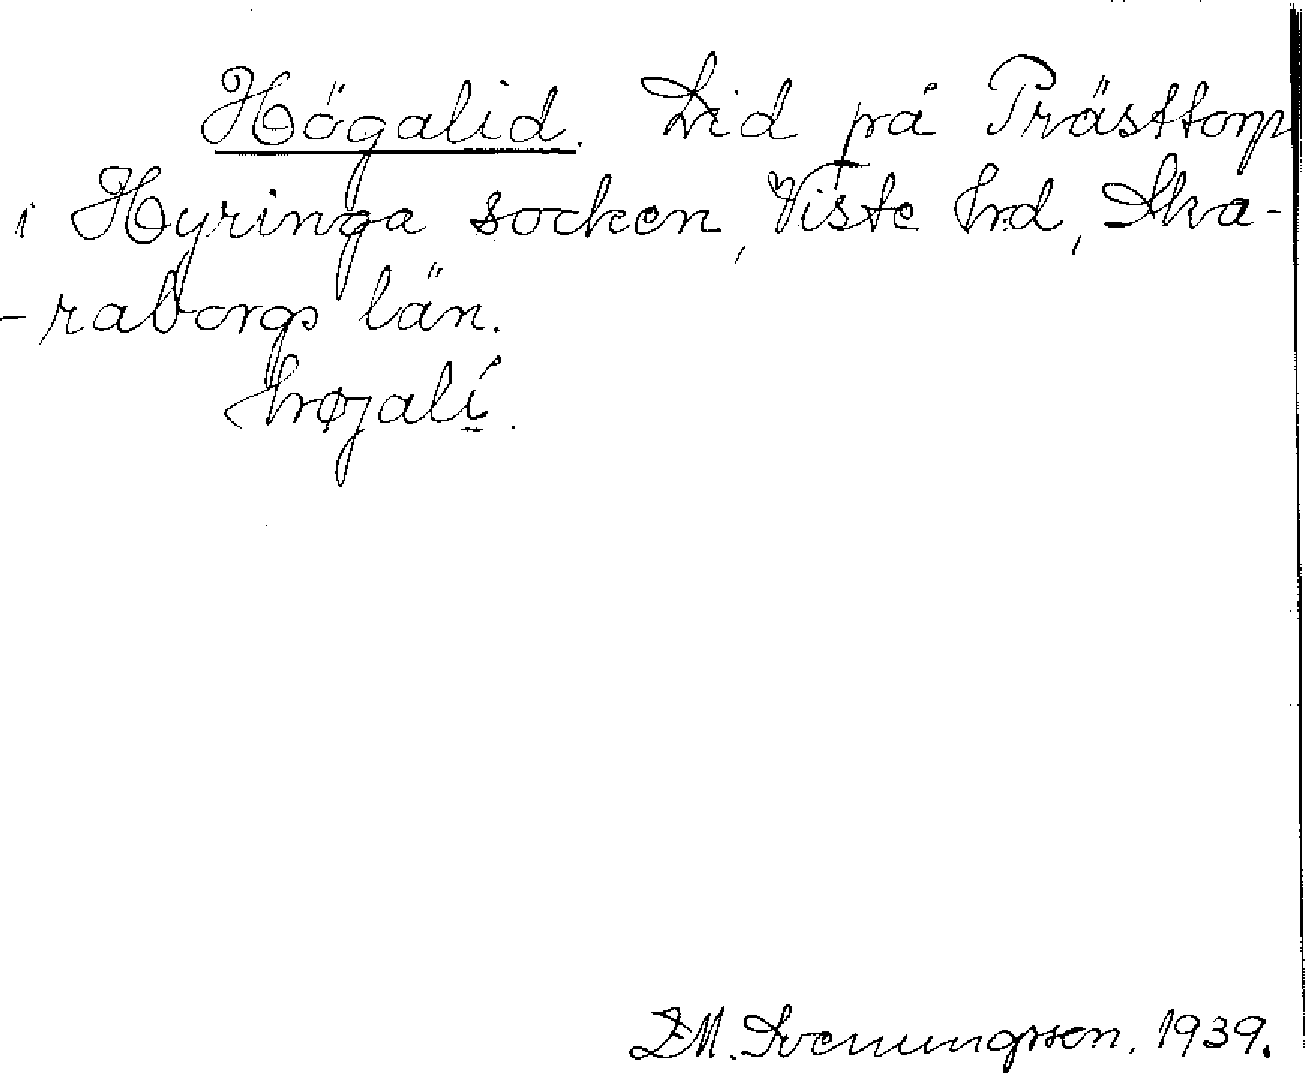 Högalid. Lid på Prästtorp
i Hyringa socken, Viste hrd, Ska-
-raborgs län.
højalí̱.
M. Svenungsson. 1939.